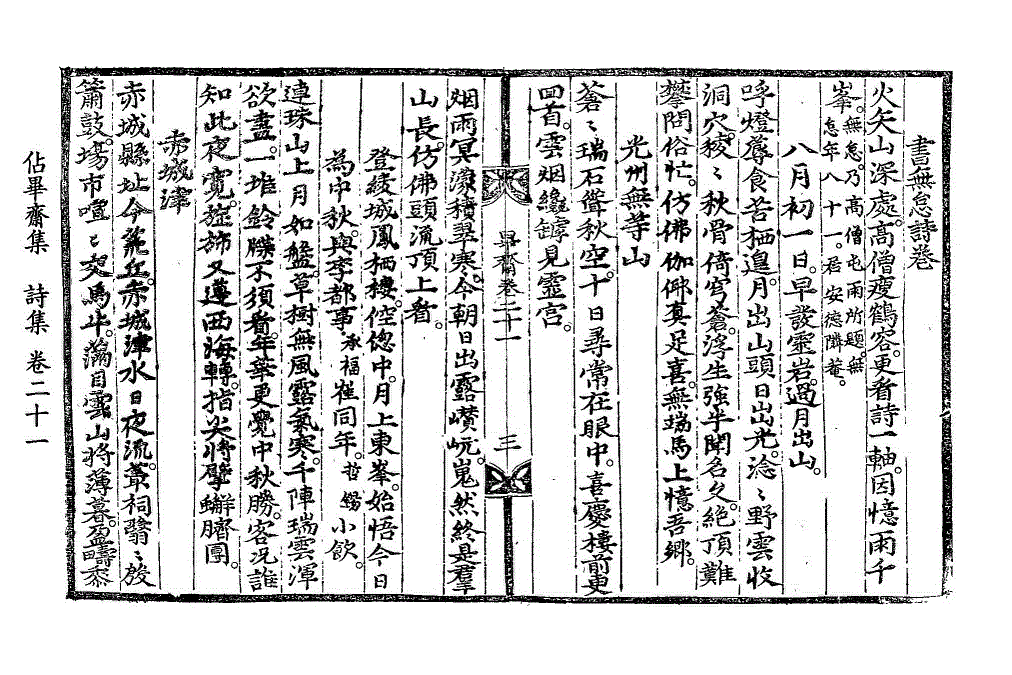 書無怠詩卷
火矢山深處。高僧瘦鶴容。更看詩一軸。因憶雨千
峯。無怠。乃高僧屯雨所題。無怠年八十一。君安德隣菴。
八月初一日。早發靈岩。過月出山。
呼燈蓐食苦栖遑。月出山頭日出光。淰〻野雲收
洞穴。稜〻秋骨倚穹蒼。浮生強半聞名久。絶頂難
攀問俗忙。仿佛伽倻眞足喜。無端馬上憶吾鄉。
光州無等山
蒼〻瑞石聳秋空。十日尋常在眼中。喜慶樓前更
回首。雲烟纔罅見靈宮。
烟雨冥濛積翠寒。今朝日出露巑岏。嵬然終是羣
山長。仿佛頭流頂上看。
登綾城鳳栖樓。倥偬中。月上東峯。始悟今日
爲中秋。與李都事 承福 崔同年。哲錫 小飮。
連珠山上月如盤。草樹無風露氣寒。千陣瑞雲渾
欲盡。一堆鈴牒不須看。年華更覺中秋勝。客況誰
知此夜寬。旌旆又遵西海轉。指尖將擘蠏臍團。
赤城津
赤城縣址今龍丘。赤城津水日夜流。叢祠翳〻殷
簫鼓。場市喧〻交馬牛。滿目雲山將薄暮。盈疇黍
畢齋卷二十一
三
佔畢齋集 詩集 卷二十一